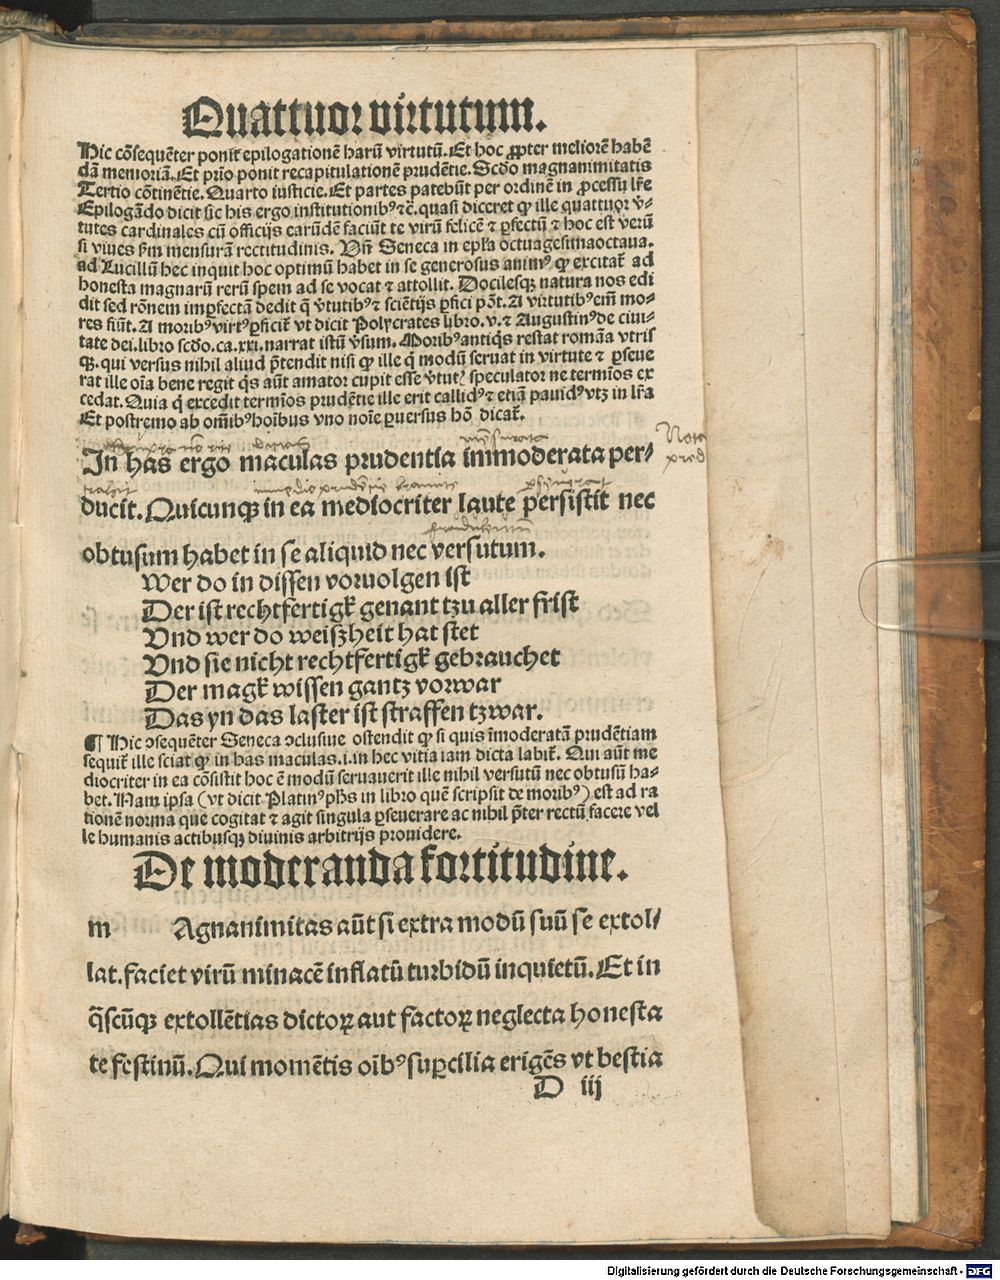 Quattuor virtutum.
Hic cōsequēter ponit epilogationē harū virtutū. Et hoc ꝓpter meliorē habē
dā memoriā. Et prīo ponit recapitulationē prudētie. Scďo magnanimitatis
Tertio cōtinētie. Quarto iusticie. Et partes patebūt per ordinē in ꝓcessu lr̄e
Epilogādo dicit sic his ergo institutionibꝰ ⁊c̄. quasi diceret ꝙ ille quattuor v̄-
tutes cardinales cū officijs earūdē faciūt te virū felicē ⁊ ꝑfectū ⁊ hoc est verū
si viues ẜm mensurā rectitudinis. Vn̄ Seneca in epl̄a octuagesimaoctaua.
ad Lucillū hec inquit hoc optimū habet in se generosus animꝰ ꝙ excitat᷑ ad
honesta magnarū rerū spem ad se vocat ⁊ attollit. Docilesqꝫ natura nos edi
dit sed rōnem imꝑfectā dedit q̄ v̄tutibꝰ ⁊ sciētijs ꝑfici pōt. A virtutibꝰ em̄ mo-
res fiūt. A moribꝰ virtꝰ ꝑficit᷑ vt dicit Polycrates libro. v. ⁊ Augustinꝰ de ciui-
tate dei. libro scďo. ca. xxi. narrat istū v̄sum. Moribꝰ antiq̇s restat romāa vtris
qꝫ. qui versus nihil aliud p̄tendit nisi ꝙ ille q̇ modū seruat in virtute ⁊ ꝑseue
rat ille oīa bene regit q̇s aūt amator cupit esse v̄tutꝭ speculator ne termīos ex
cedat. Quia q̇ excedit termīos prudētie ille erit callidꝰ ⁊ etiā pauidꝰ vtꝫ in lr̄a
Et postremo ab om̄ibꝰ hoībus vno noīe ꝑuersus hō dicat᷑.
Nota
In has ergo maculas prudentia immoderata per-
ducit. Quicunqꝫ in ea mediocriter laute persistit nec
obtusum habet in se aliquid nec versutum.
Wer do in dissen voruolgen ist
Der ist rechtfertigk̄ genant tzu aller frist
Vnd wer do weißheit hat stet
Vnd sie nicht rechtfertigk̄ gebrauchet
Der magk̄ wissen gantz vorwar
Das yn das laster ist straffen tzwar.
¶ Hic ↄsequēter Seneca ↄclusiue ostendit ꝙ si quis īmoderatā prudētiam
sequit᷑ ille sciat ꝙ in has maculas. i. in hec vitia iam dicta labit᷑. Qui aūt me
diocriter in ea cōsistit hoc ē modū seruauerit ille nihil versutū nec obtusū ha-
bet. Nam ipsa (vt dicit Platinꝰ ph̄s in libro quē scripsit de moribꝰ) est ad ra
tionē norma que cogitat ⁊ agit singula ꝑseuerare ac nihil p̄ter rectū facere vel
le humanis actibusqꝫ diuinis arbitrijs prouidere.
De moderanda fortitudine.
m Agnanimitas aūt si extra modū suū se extol-
lat. faciet virū minacē inflatū turbidū inquietū. Et in
q̄scūqꝫ extollētias dictoꝝ aut factoꝝ neglecta honesta
te festinū. Qui momētis oībꝰ suꝑcilia erigēs vt bestia
D iij
Digitalisierung gefördert durch die Deutsche Forschungsgemeinschaft - DFG